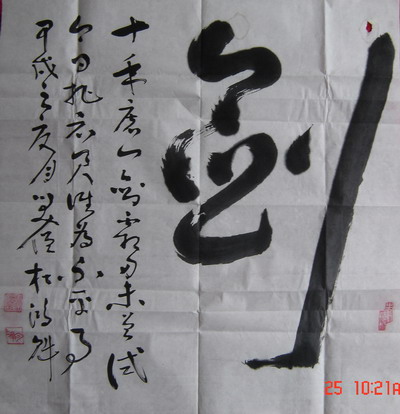 劍
十年磨一劍霜刃未曾試
今日把示君誰為不平事
甲戌之夏月
25 10:21A